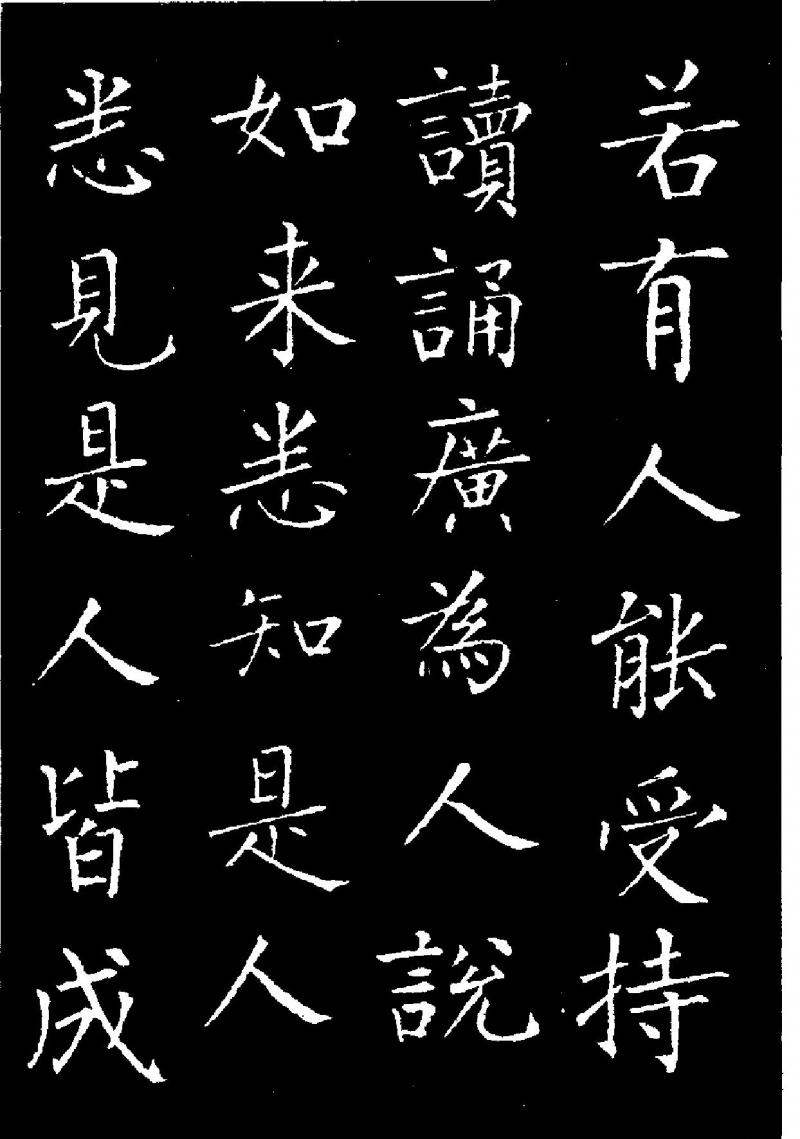 若有人能受持
讀誦廣為人說
如来悉知是人
悉見是人皆成